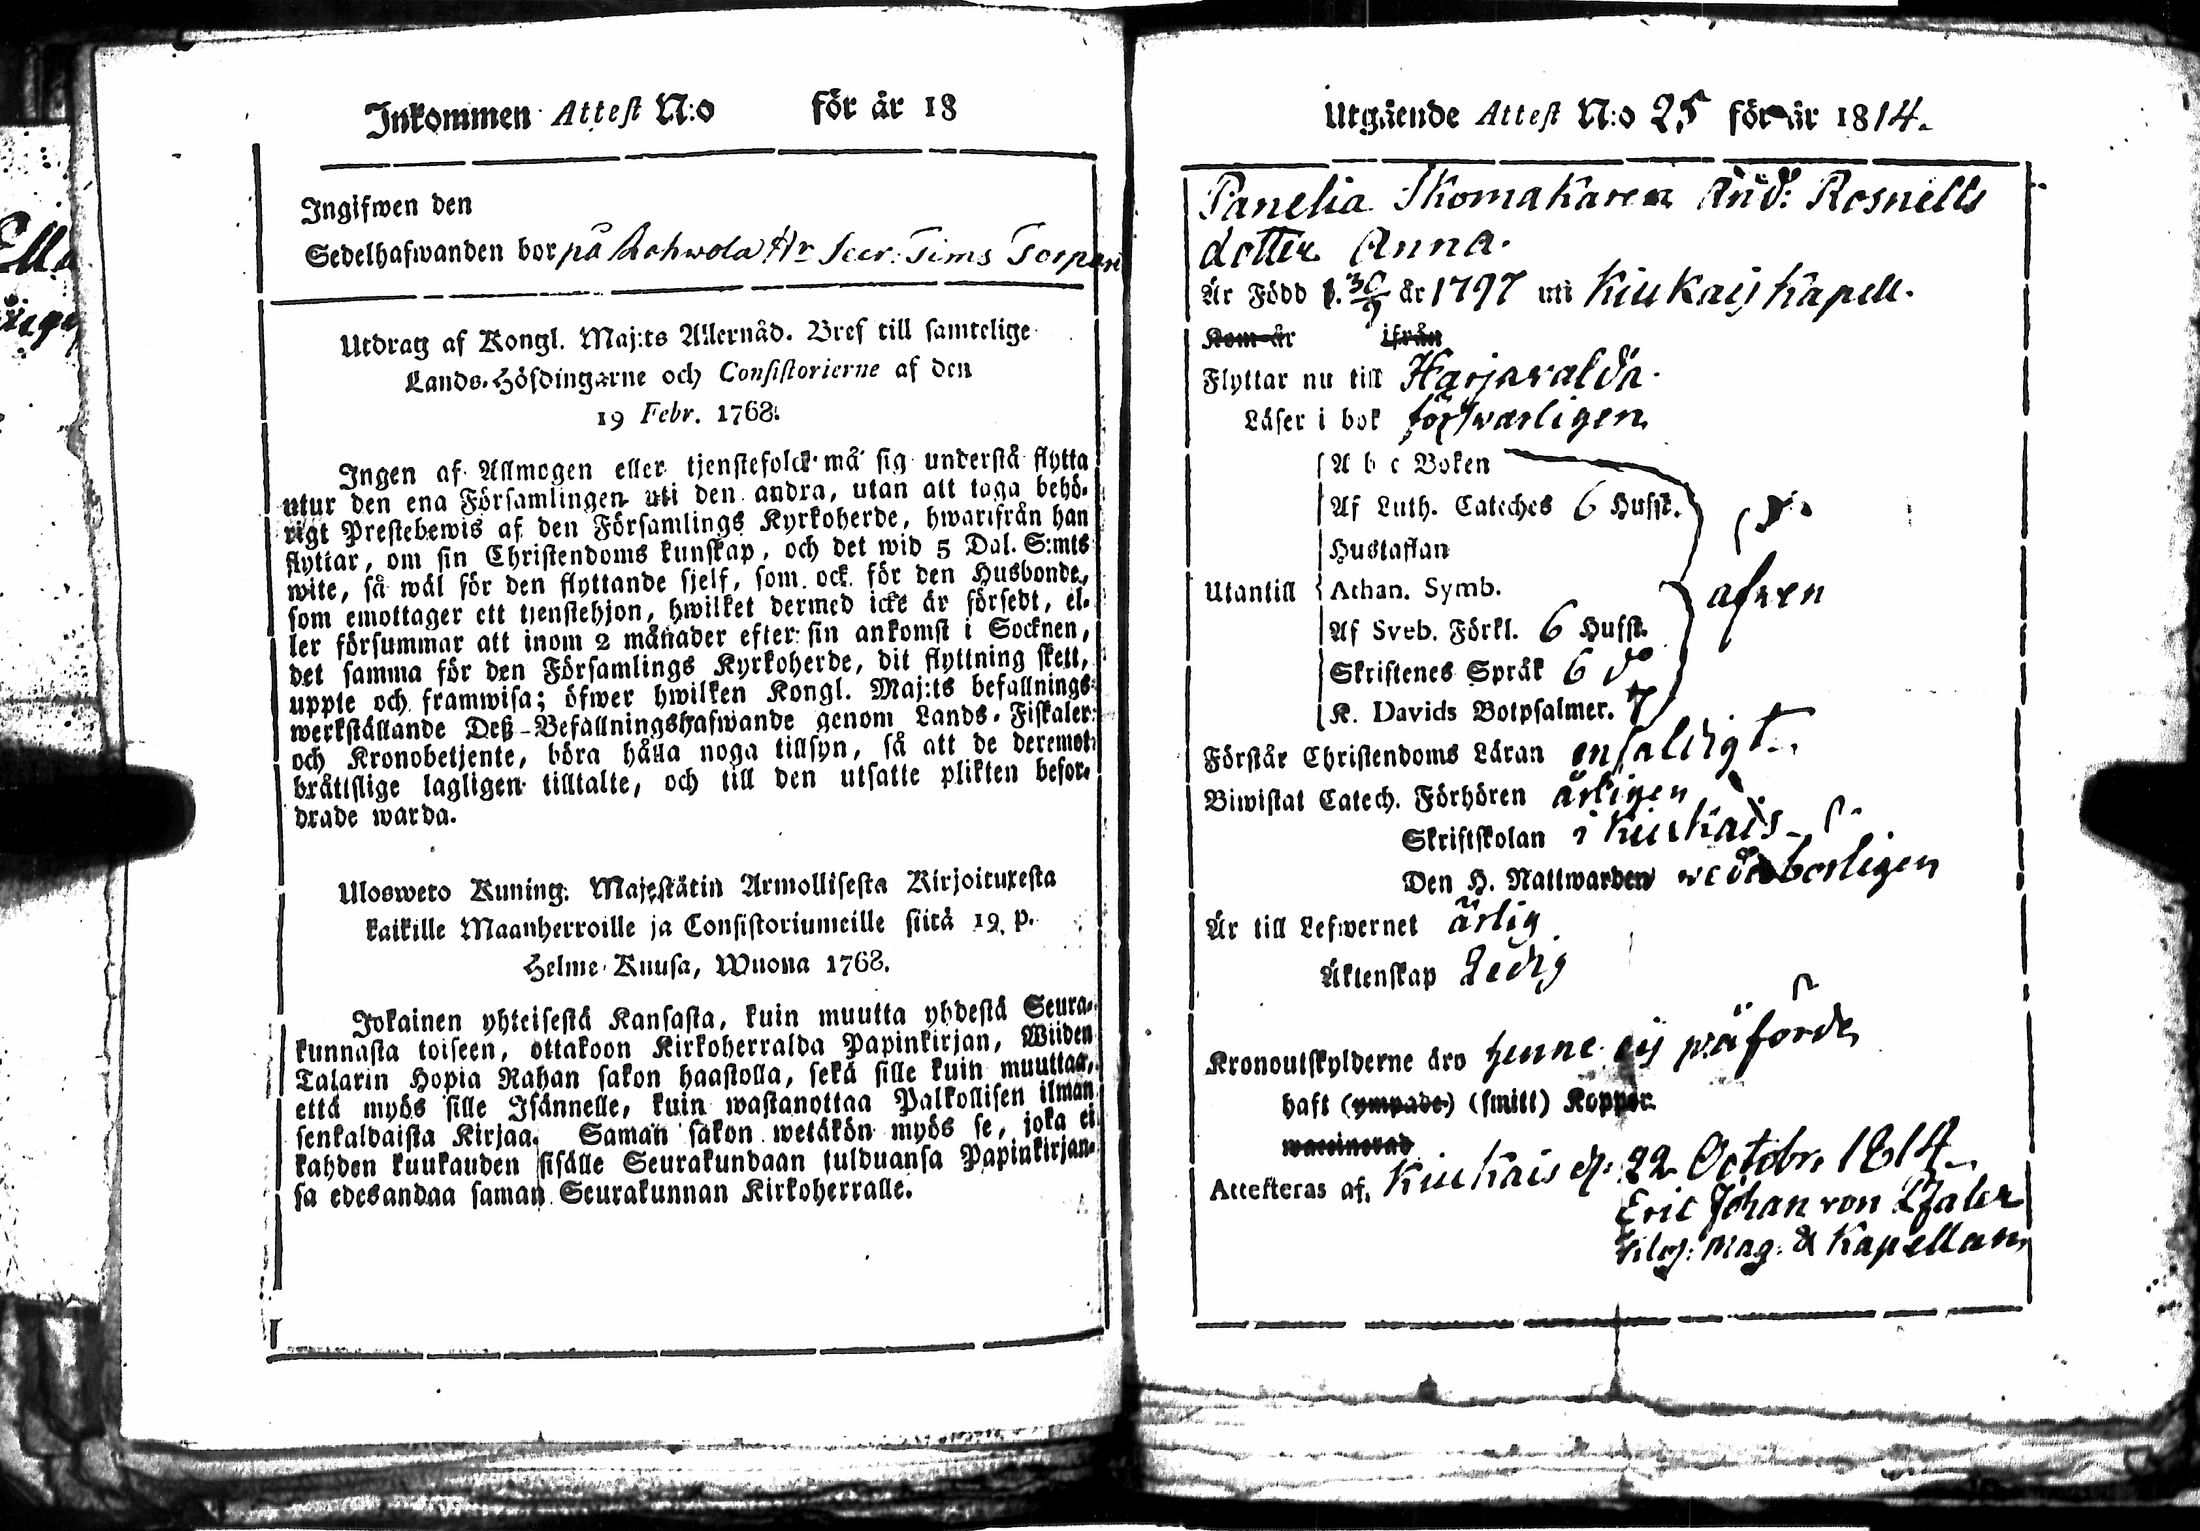 Inkommen Attest N:o för år 18
Ingifwen den
Sedelhafwanden bor på Hr Secr: Torpare
Utdrag af Kongl. Maj:ts Allernåd. Bref till samtelige
Lands-Höfdingarne och Consistorierne af den
19 Febr. 1768.
Ingen af Allmogen eller tjenstefolck må sig understå flytta
utur den ena Församlingen uti den andra, utan att taga behö-
rigt Prestebewis af den Församlings Kyrkoherde, hwarifrån han
flyttar, om sin Christendoms kunskap, och det wid 5 Dal. S:mts
wite, så wäl för den flyttande sjelf, som ock för den Husbonde,
som emottager ett tjenstehjon, hwilket dermed icke är försedt, el-
ler försummar att inom 2 månader efter sin ankomst i Socknen,
det samma för den Församlings Kyrkoherde, dit flyttning skett,
uppte och framwisa; öfwer hwilken Kongl. Maj:ts befallnings
werkställande Deß Befallningshafwande genom Lands-Fiskaler
och Kronobetjente, böra hålla noga tillsyn, så att de deremot
bråttslige lagligen tilltalte, och till den utsatte plikten befor-
drade warda.
Ulosweto Kuning. Majestätin Armollisesta Kirjoituxesta
kaikille Maanherroille ja Consistoriumeille siitä 19. p.
Helme-Kuusa, Wuona 1768.
Jokainen yhteisestä Kansasta, kuin muutta yhdestä Seura-
kunnasta toiseen, ottakoon Kirkoherralda Papinkirjan, Wiiden
Talarin Hopia Rahan sakon haastolla, sekä sille kuin muuttaa,
että myös sille Isännelle, kuin wastanottaa Palkollisen ilman
senkaldaista Kirjaa. Saman sakon wetäkön myös se, joka ei
kahden kuukauden sisälle Seurakundaan tulduansa Papinkirjan-
sa edesandaa saman Seurakunnan Kirkoherralle.
Utgående Attest N:o 25 för år 1814.
Panelia Skomakaren And: Rosnells
dotter Anna.
Är Född d. 30/9 år 1797 uti Kiukais Kapell.
Kom år ifrån
Flyttar nu till Harjavalda.
Läser i bok försvarligen
A b c Boken
Af Luth. Cateches 6 Hufst.
Hustaflan
Utantill Athan. Symb. afven
Af Sveb. Förkl. 6 Hufst.
Skriftenes Språk 6 do
K. Davids Botpsalmer. 7
Förstår Christendoms Läran enfaldigt.
Biwistat Catech. Förhören årligen
Skriftskolan i Kiukais
Den H. Nattwarden vederborligen
Är till Lefwernet ärlig
Äktenskap Ledig
Kronoutskylderne äro henne ej påförde
haft (ympade) (smitt) Koppor.
waccinerad
Attesteras af, Kiukais d. 22 Octobr. 1814
Eric Johan von Pfaler
Filos: Mag: & Kapellan